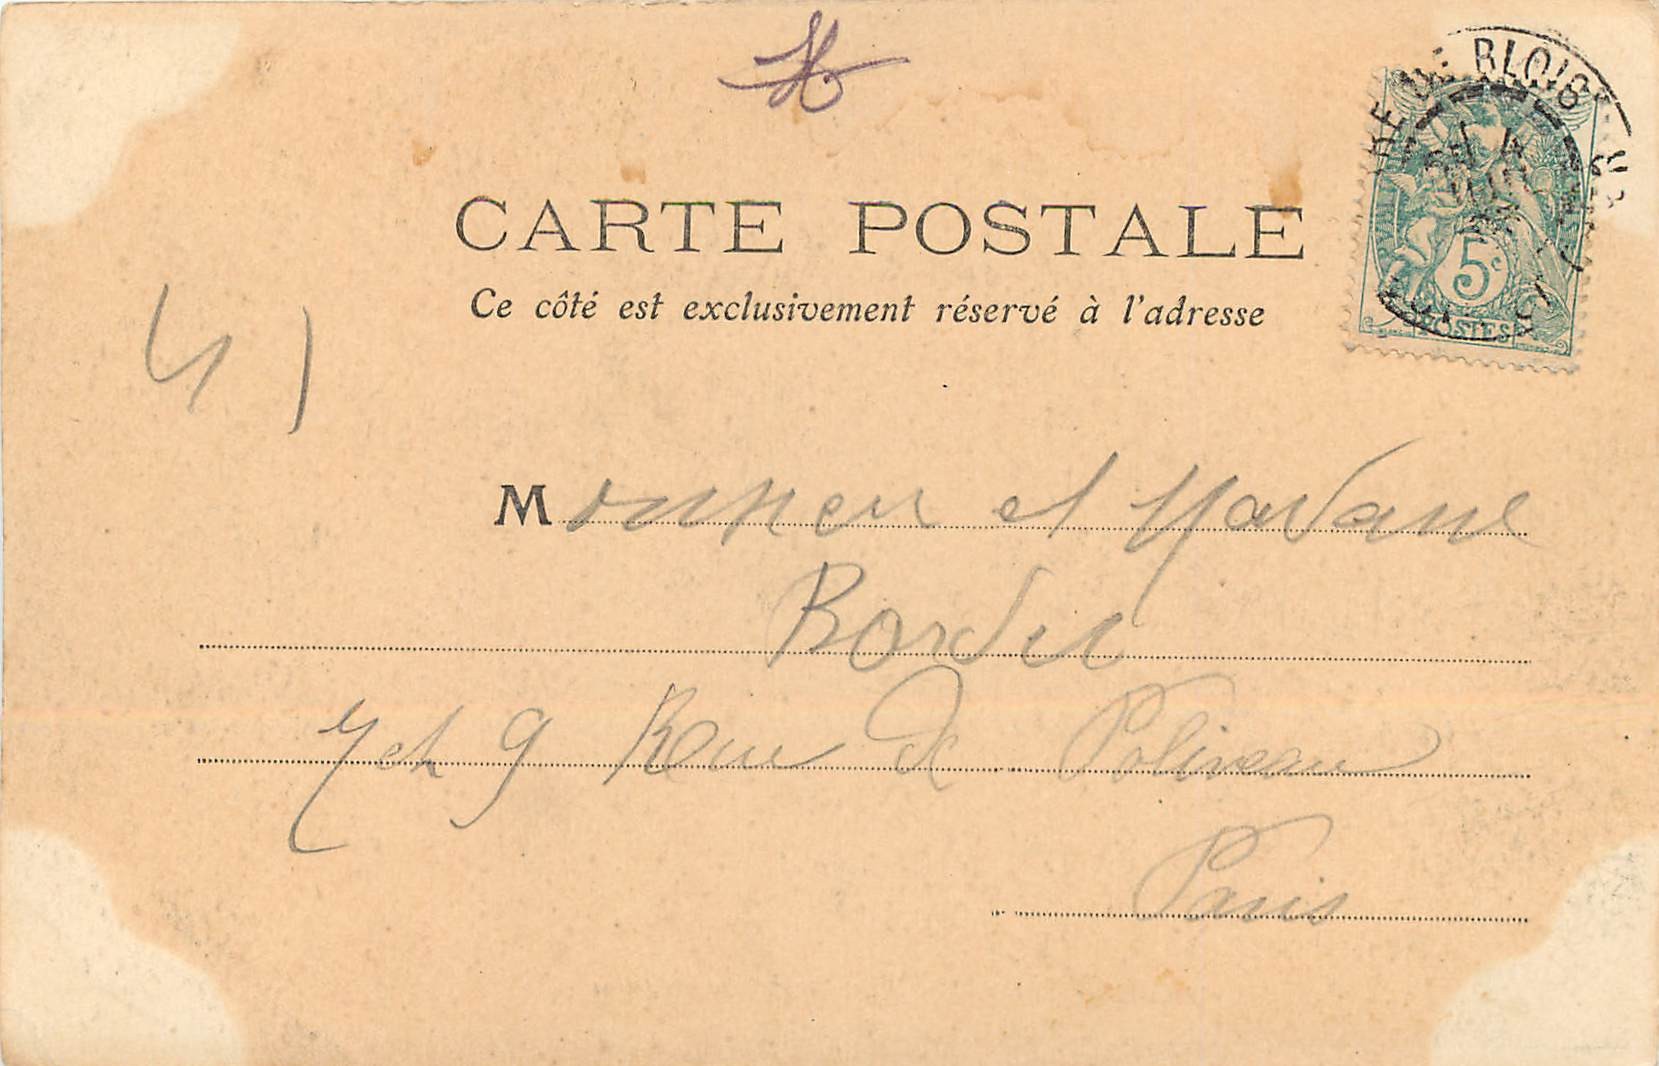 CARTE POSTALE
Ce côté est exclusivement réservé à l'adresse
BLOIS
5c
POSTES
Monsieur et Madame
7 et 9 Rue de Poliveau
Paris